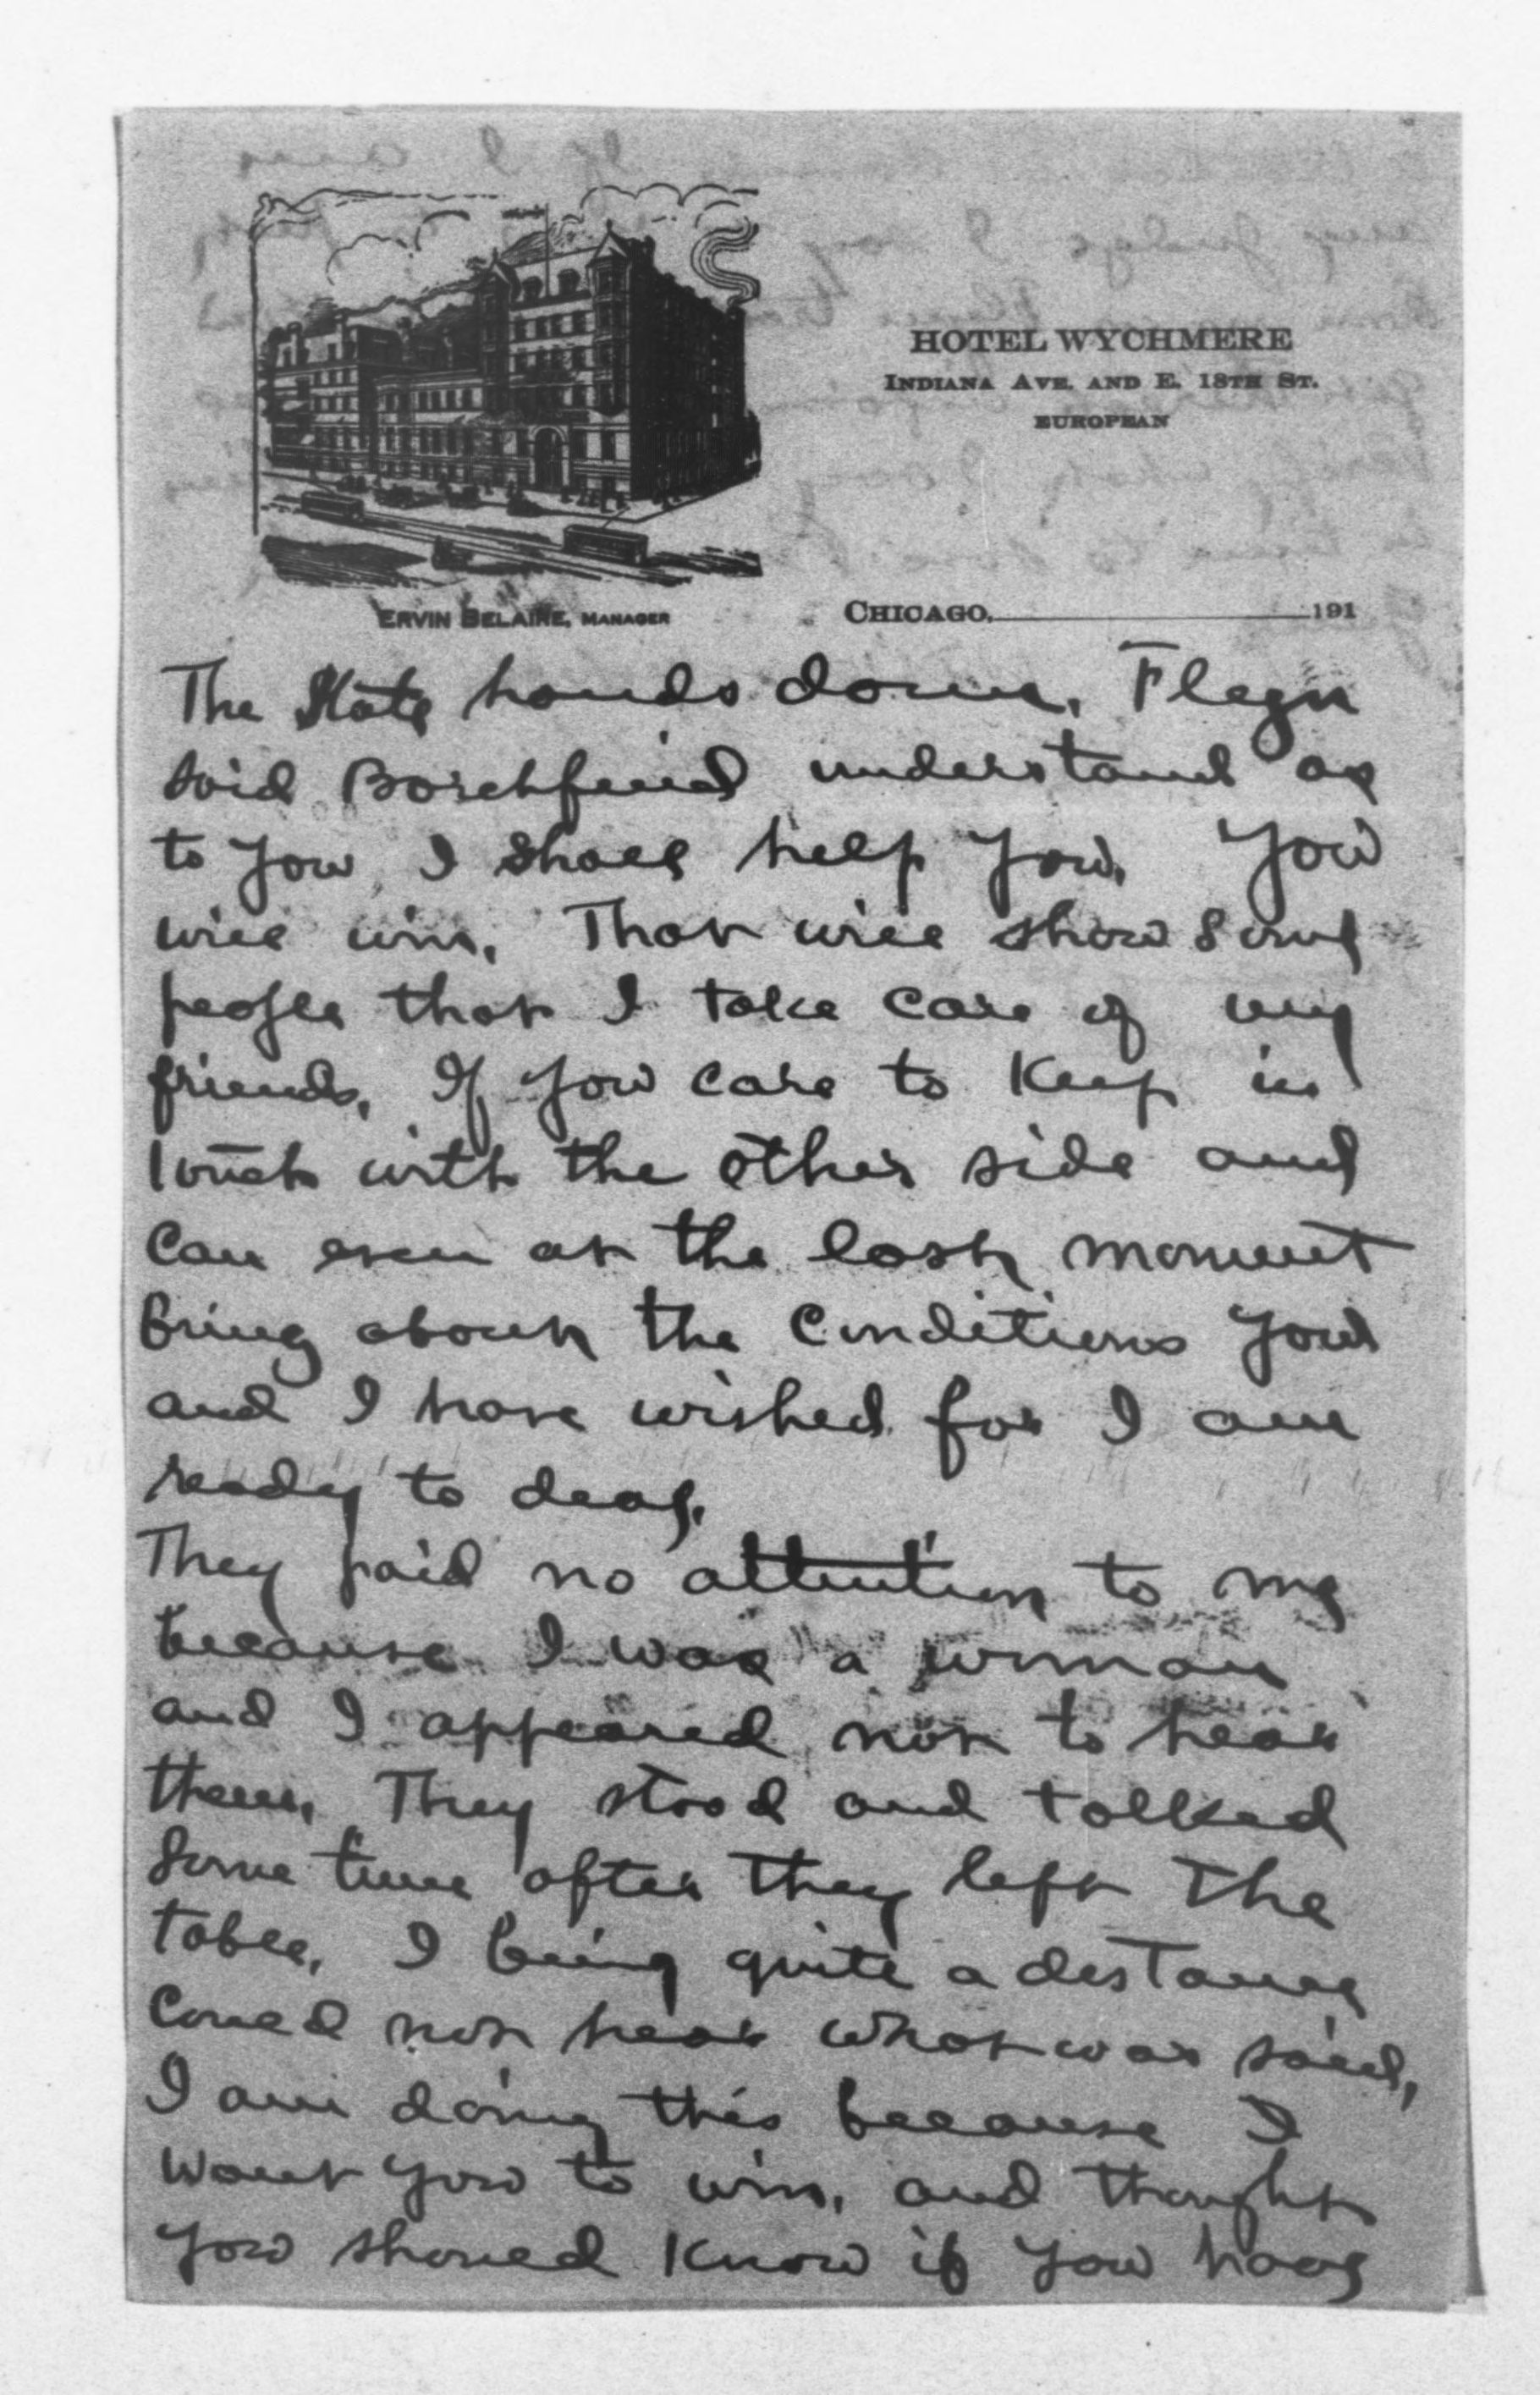 HOTEL WYCHMERE
INDIANA AVE. AND E. 18TH ST.
EUROPEAN
ERVIN BELAIRE, MANAGER
CHICAGO, 191
The State hands down. Flegn
said Borchfeied understand as
to you, I shall help you. You
will win. That will show some
people that I take care of my
friends. If you care to Keep in
touch with the other side and
can even at the last moment
bring about the conditions you
and I have wished for I am
ready to deal.
They paid no attention to me
because I was a woman
and I appeared not to hear
them. They stood and talked
some time after they left the
table. I being quite a distance
could not hear what was said,
I am doing this because I
want you to win, and thought
you should know if you have